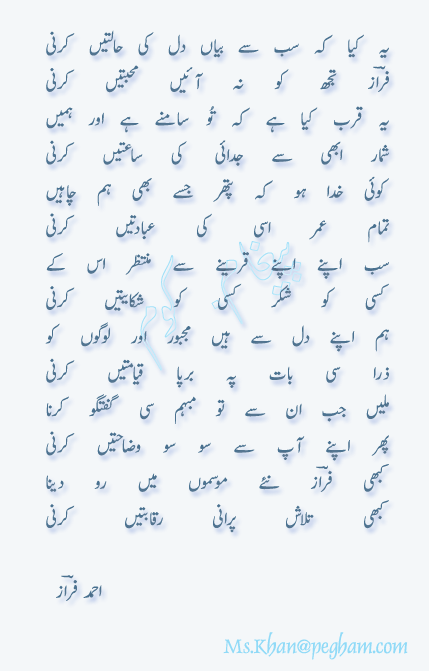 یہ کیا کہ سب سے بیاں دل کی حالتیں کرنی
فراز تجھ کو نہ آئیں محبتیں کرنی
یہ قرب کیا ہے کہ تُو سامنے ہے اور ہمیں
شمار ابھی سے جدائی کی ساعتیں کرنی
کوئی خدا ہو کہ پتھر جسے بھی ہم چاہیں
تمام عمر اسی کی عبادتیں کرنی
سب اپنے اپنے قرینے سے منتظر اس کے
کسی کو شکر کسی کو شکایتیں کرنی
ہم اپنے دل سے ہیں مجبور اور لوگوں کو
ذرا سی بات پہ برپا قیامتیں کرنی
ملیں جب ان سے تو مبہم سی گفتگو کرنا
پھر اپنے آپ سے سو سو وضاحتیں کرنی
کبھی فراز نئے موسموں میں رو دینا
کبھی تلاش پرانی رقابتیں کرنی
احمد فراز
Ms.Khan@pegham.com